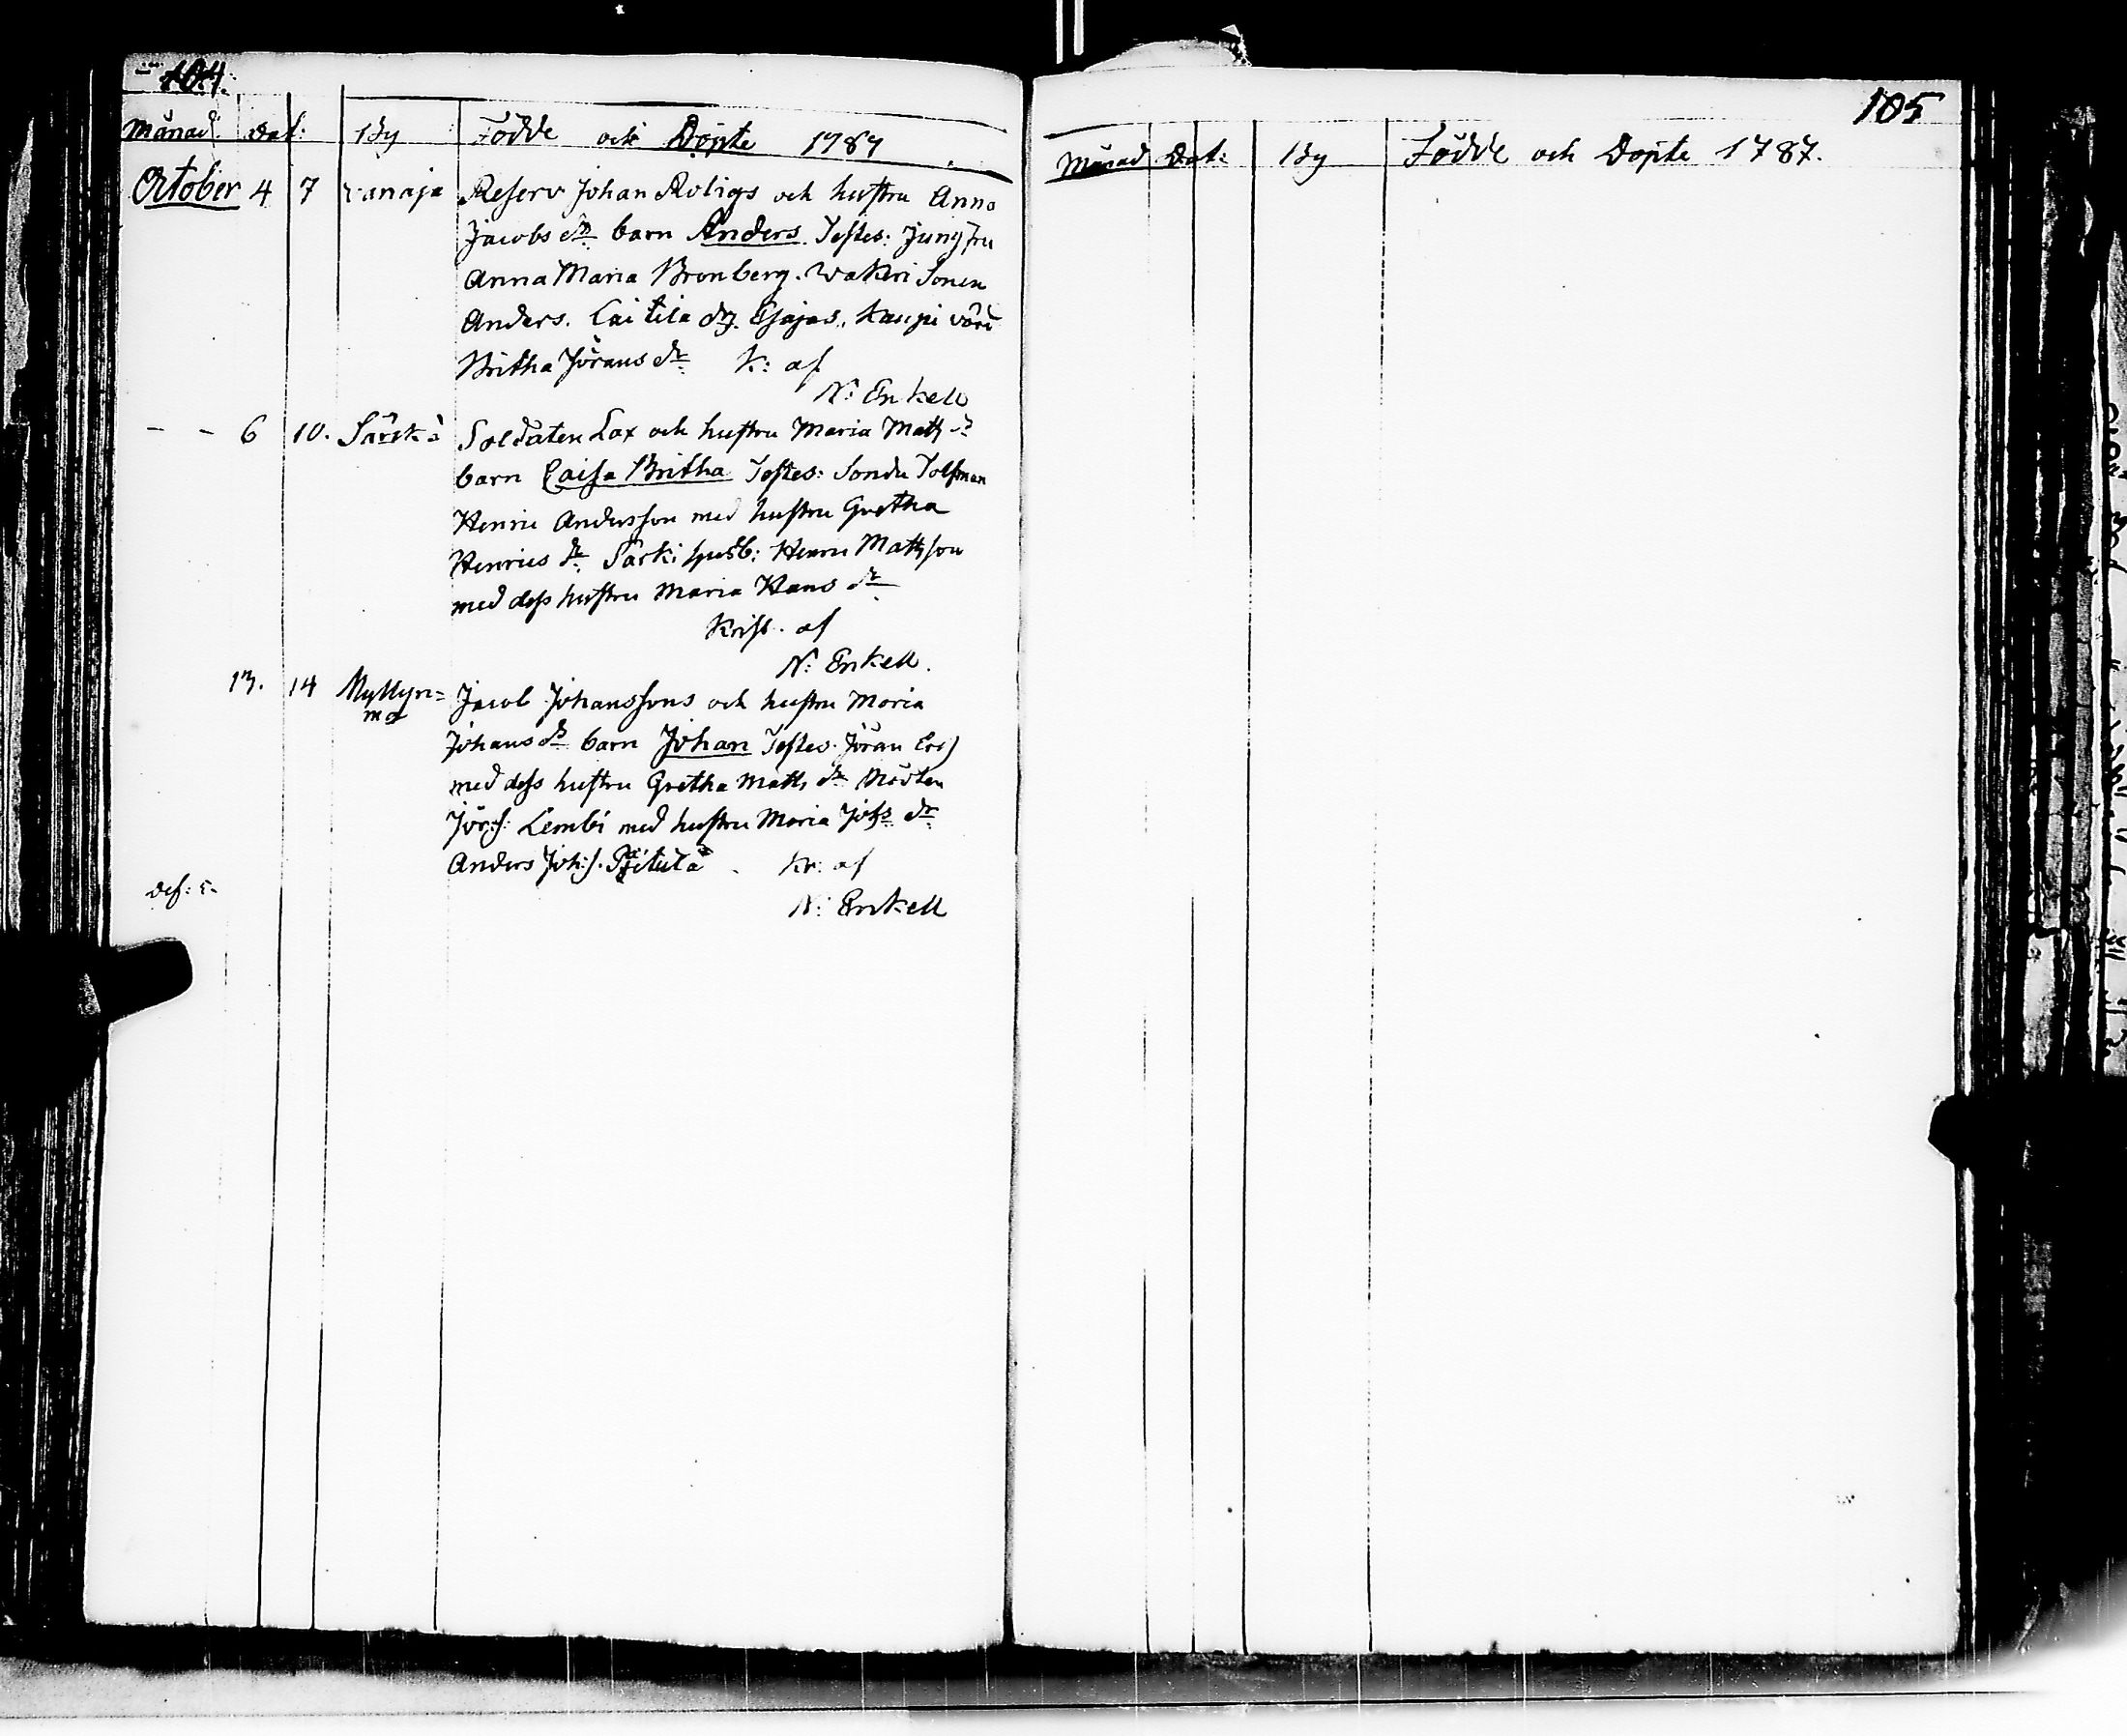 104.
Månad Dat: By Födde och Döpte 1787
October 4 7 Vanaja Reserv Johan Roligs och hustru Anna
Jacobs dr barn Anders. Testes: Jungfru
Anna Maria Bronberg. Wakeri Sonen
Anders. Laitila dr. Esajas. Kaupi
Britha Jörans dr K: af
N: Enkell
- - 6 10. Särkiä Soldaten Lax och hustru Maria Matts dr
barn Caisa Britha Testes: Tolfman
Henric Andersson med hustru Gretha
Henrics dr Särki husb: Henric Mattsson
med dess hustru Maria Hans dr
Krist. af
N: Enkell.
13. 14 Myllyn=
ma
Jacob Johanssons och hustru Maria
Johans dr barn Johan Testes. Jöran
med dess hustru Gretha Matts dr Mårten
Jör:s. Lembi med hustru Maria Johs dr
Anders Joh:s. Kr: af
N: Enkell
105
Månad Dat: By Födde och Döpte 1787.